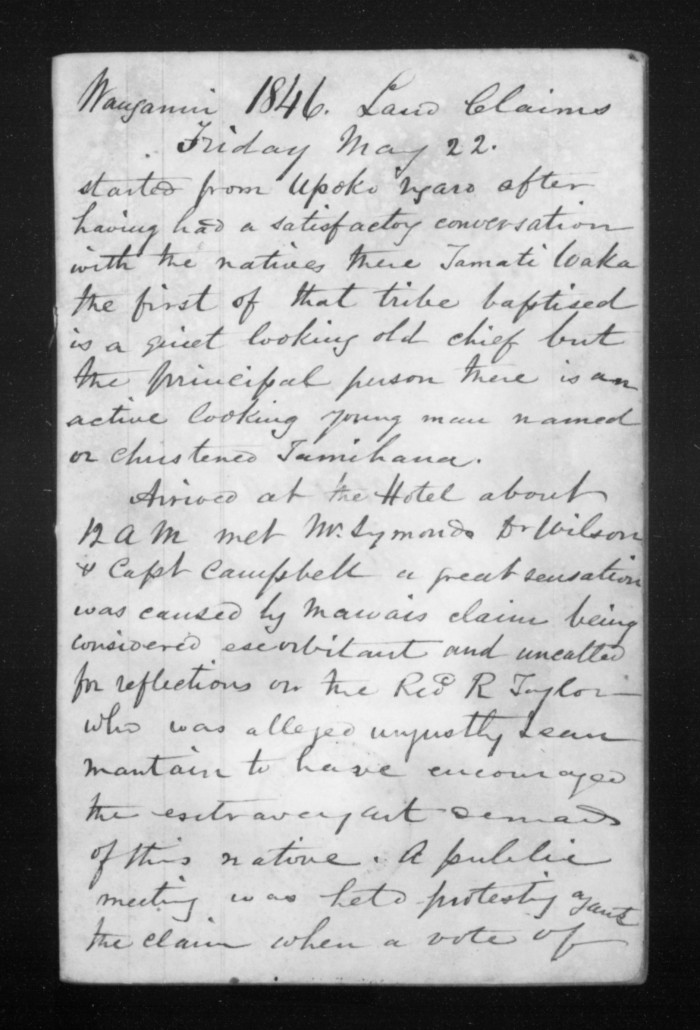 Wanganui 1846. Land Claims
Friday May 22.
started from Upoko ngaro after
having had a satisfactory conversation
with the natives there Tamati Waka
the first of that tribe baptised
is a quiet looking old chief but
the principal person there is an
active looking young man named
or christened Tamihana.
Arrived at the Hotel about
12 A M met Mr. Symonds Dr Wilson
& Capt Campbell a great sensation
was caused by Mawais claim being
considered exorbitant and uncalled
for reflections on the Revd R Taylor
who was alleged unjustly I can
mantain to have encouraged
the extravagant demands
of this native. A public
meeting was held protesting against
the claim when a vote of